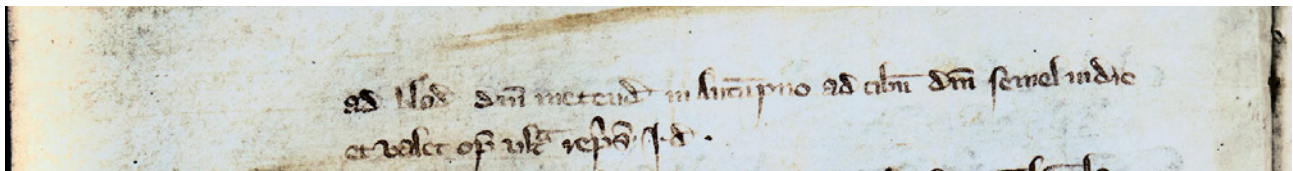 ad blod dm̄ metend in Autūpno ad cibū dm̄ semel in die
et valet op̄ ultͣ rep̄s j d .